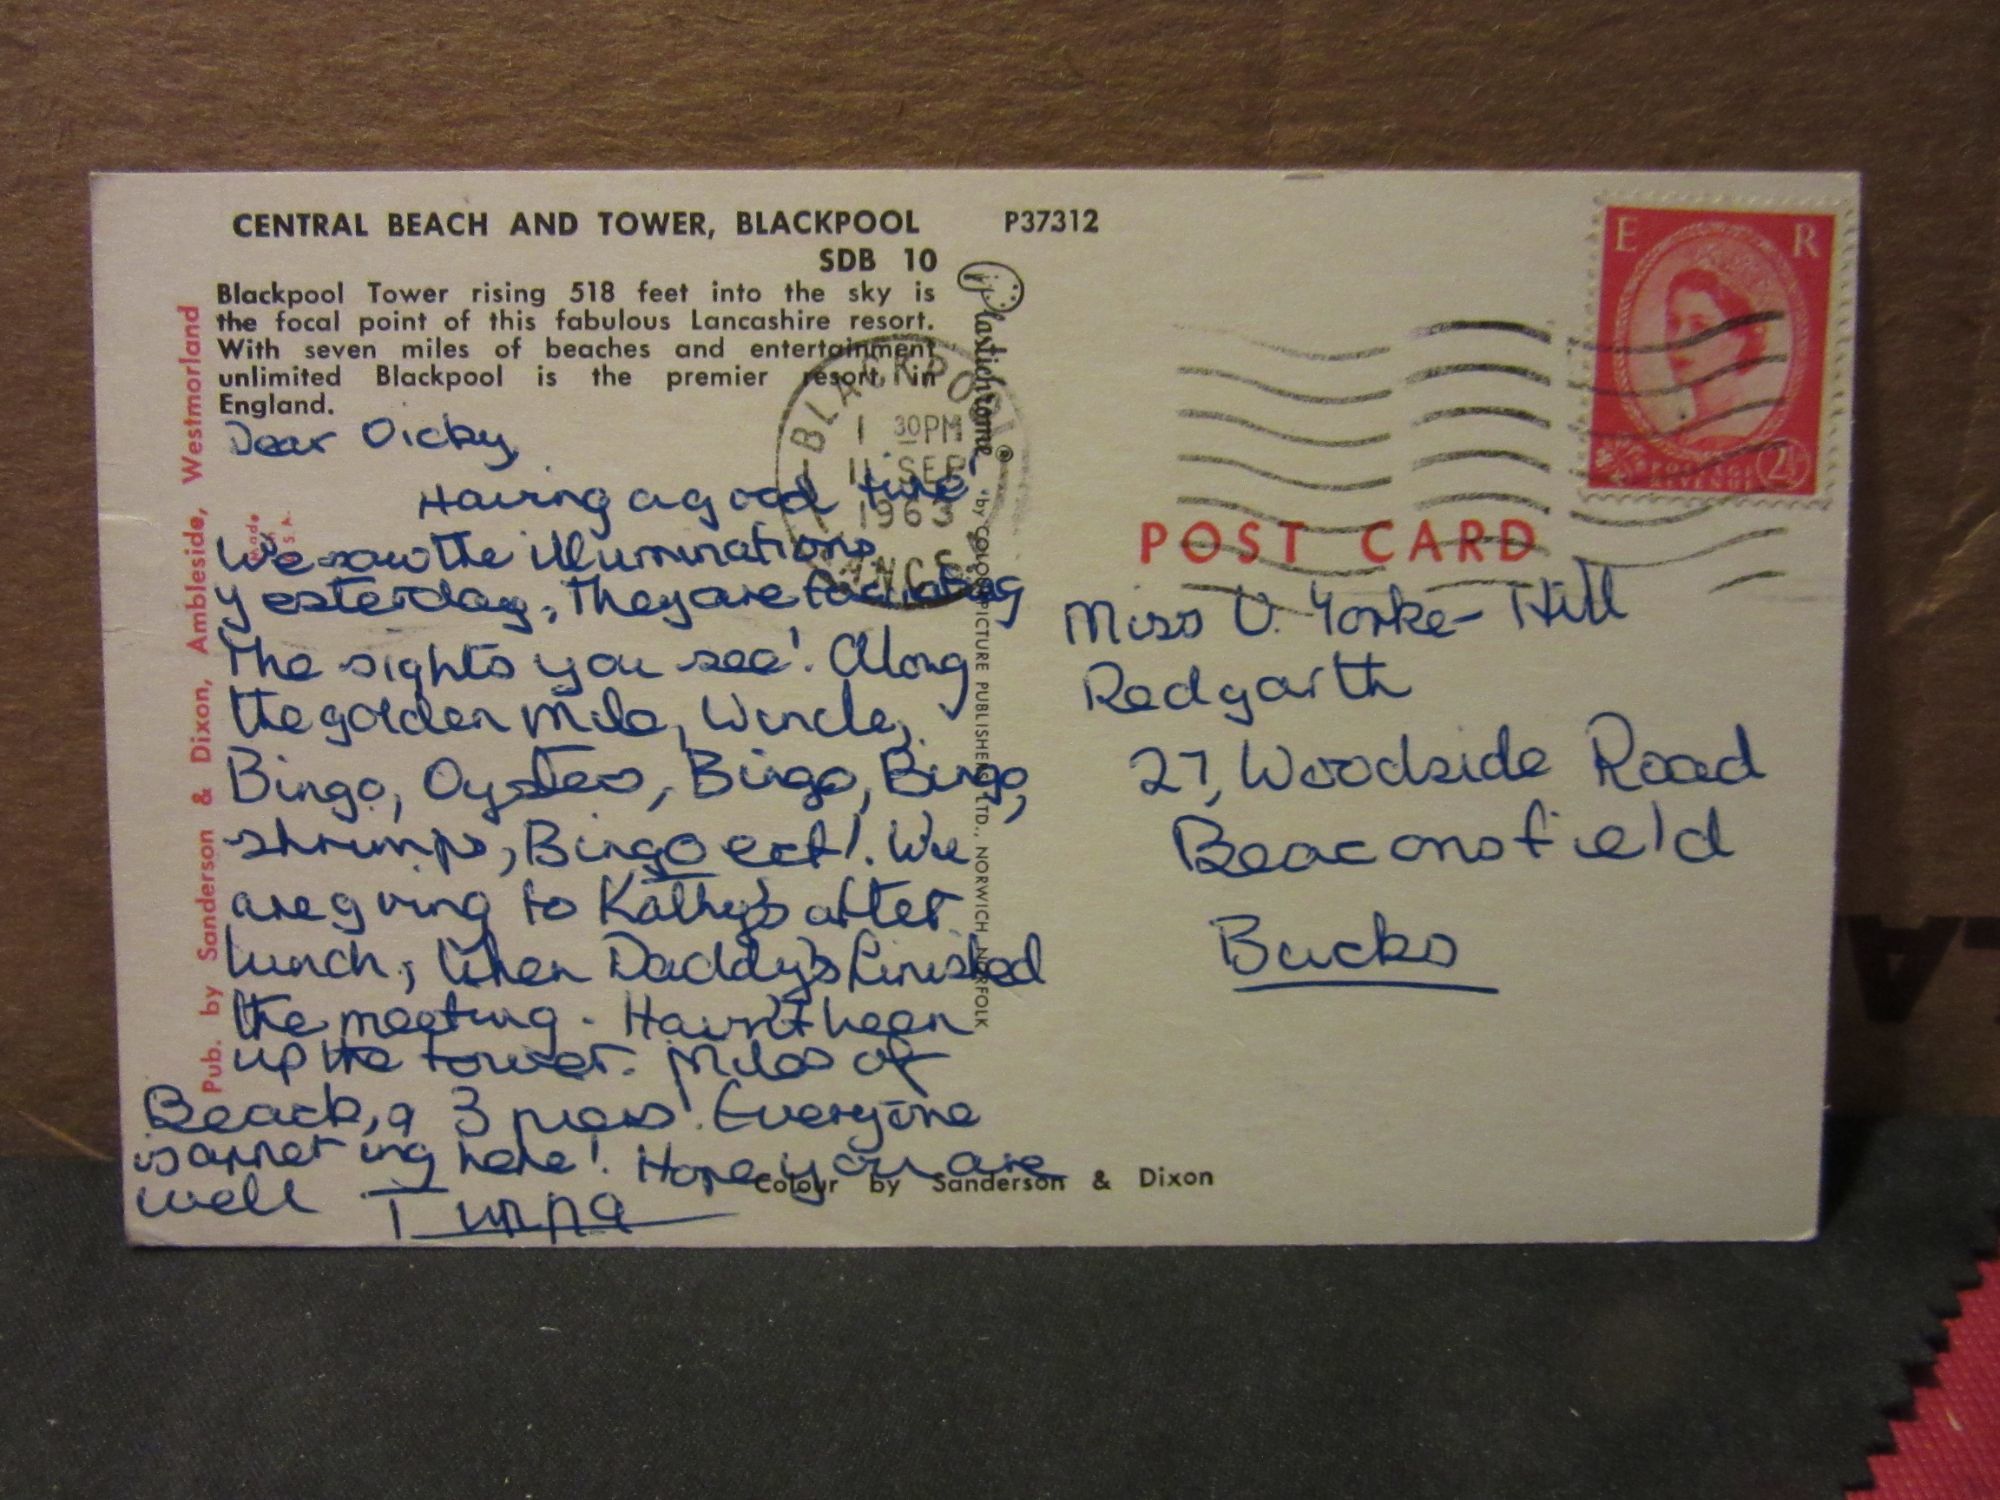 CENTRAL BEACH AND TOWER, BLACKPOOL P37312
SDB 10
Blackpool Tower rising 518 feet into the sky is
the focal point of this fabulous Lancashire resort.
With seven miles of beaches and entertainment
unlimited Blackpool is the premier resort in
England.
Dear Dicky,
Having a good time
We saw the illuminations
yesterday, They are
The sights you see! Along
the golden mile,
Bingo, Oysters, Bingo, Bingo,
shrimps, Bingo ect!. We
are going to Kathy's after
lunch, when Daddy's finished
the meeting. Havn't been
up the tower. Miles of
Beach, 3 piers! Everyone
is here! Hope you are
well
Pub. by Sanderson & Dixon, Ambleside, Westmorland
Made
U.S.A.
Plastichrome ® by COLOURPICTURE PUBLISHERS LTD., NORWICH, NORFOLK
BLACKPOOL
1 30PM
11 SEP
1963
LANCS
E R
POSTAGE
REVENUE
POST CARD
Miss V. Yorke-Hill
Redgarth
27, Woodside Road
Beaconsfield
Bucks
Colour by Sanderson & Dixon